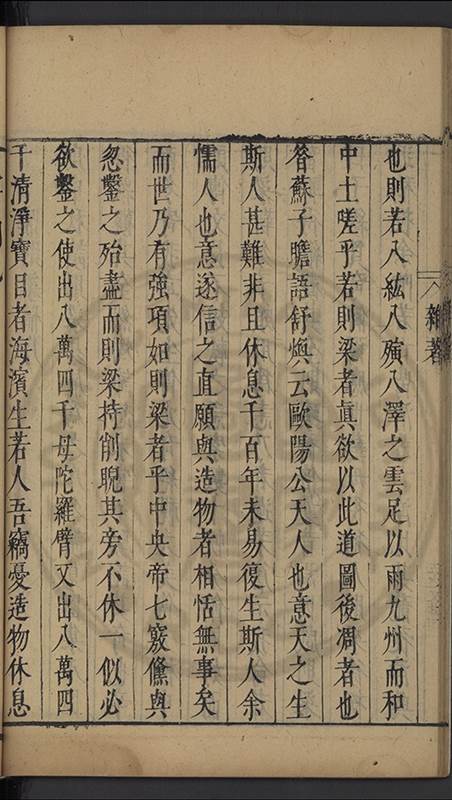 雜著
也則若八紘八殥八澤之雲足以雨九州而和
中土嗟乎若則梁者眞欲以此道圖後凋者也
昝蘇子瞻語舒煥云歐陽公天人也意天之生
斯人甚難非且休息千百年未易復生斯人余
懦人也意遂信之直願與造物者相恬無事矣
而世乃有強項如則梁者乎中央帝七竅儵與
忽鑿之殆盡而則梁持削睨其旁不休一似必
欲鑿之使出八萬四千母陀羅臂又出八萬四
千清淨寶目者海濱生若人吾竊憂造物休息